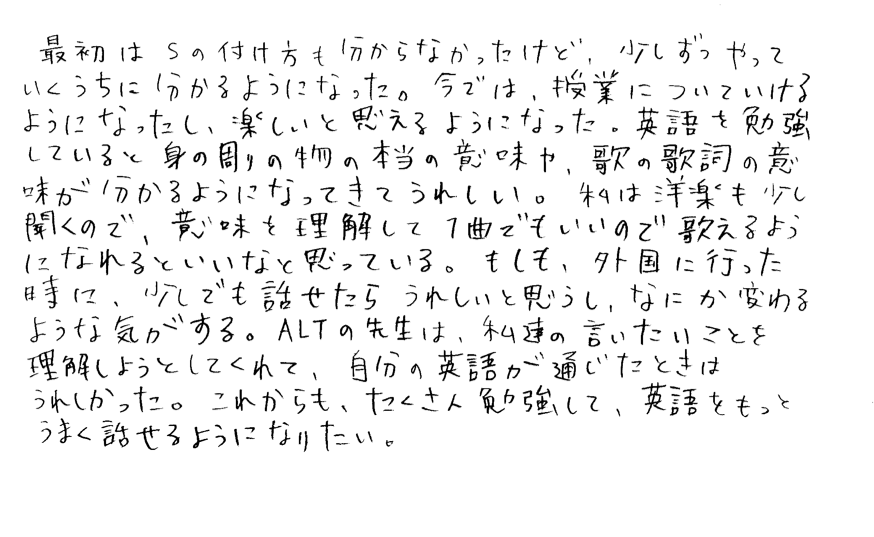 最初はSの付け方も分からなかったけど、少しずつやって
いくうちに分かるようになった。今では、授業についていける
ようになったし、楽しいと思えるようになった。英語を勉強
していると身の周りの物の本当の意味や、歌の歌詞の意
味が分かるようになってきてうれしい。私は洋楽も少し
聞くので、意味を理解して1曲でもいいので歌えるよう
になれるといいなと思っている。もしも、外国に行った
時に、少しでも話せたらうれしいと思うし、なにか変わる
ような気がする。ALTの先生は、私達の言いたいことを
理解しようとしてくれて、自分の英語が通じたときは
うれしかった。これからも、たくさん勉強して、英語をもっと
うまく話せるようになりたい。